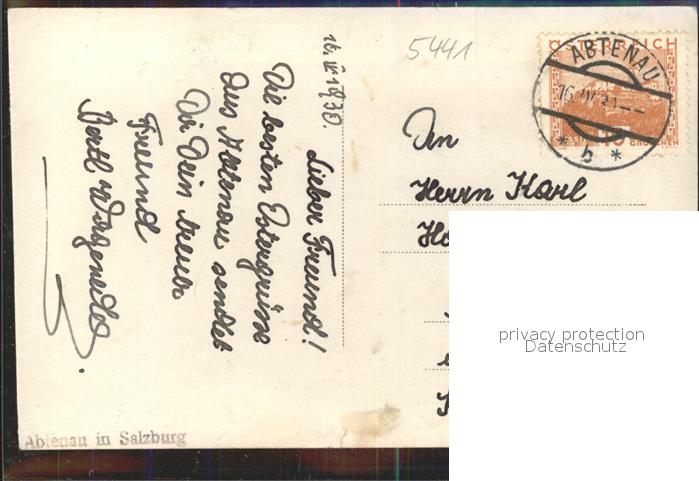 16. IV 1930.
Lieber Freund!
Die besten Ostergrüsse
Aus Abtenau sendet
Dir Dein treuer
Freund
5441
ÖSTERREICH
ABTENAU
16.IV.30
GROSCHEN
* b *
An
Herrn Karl
privacy protection
Datenschutz
Abtenau in Salzburg